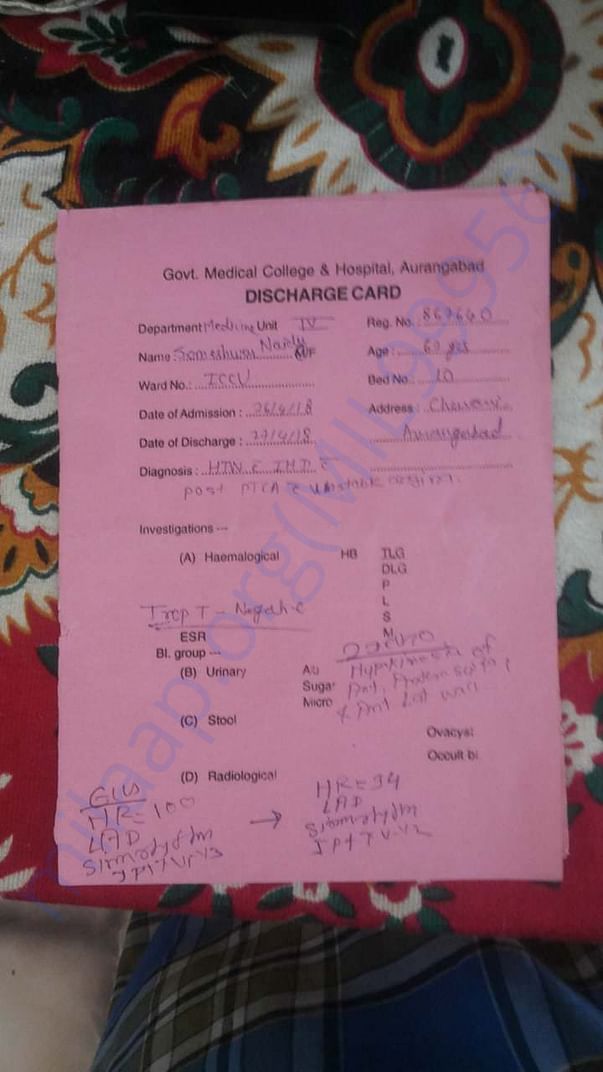 Govt. Medical College & Hospital, Aurangabad
DISCHARGE CARD
Department Medicine Unit IV Reg. No. 867640
Name : Someshwar Naidu M/F Age : 60 yrs
Ward No.: ICCU Bed No.: 10
Date of Admission : 26/4/18 Address : Chawani
Date of Discharge : 27/4/18 Aurangabad
Diagnosis : HTN c IHD c
post PTCA c unstable angina.
Investigations ---
(A) Haemalogical HB TLG
DLG
P
L
S
M
Trop T - Negative
ESR
Bl. group ---
(B) Urinary Alb
Sugar
Micro
2D ECHO
Hypokinesia of
Ant.
& Ant Lat wall
(C) Stool
Ovacyst
Occult bl.
(D) Radiological
HR = 100
LAD
→
HR = 94
LAD
milaap.org(MIL99956)